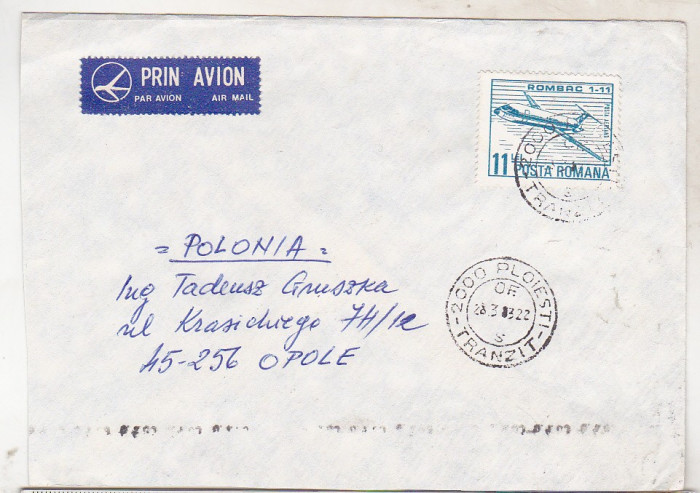 PRIN AVION
PAR AVION AIR MAIL
ROMBAC 1-11
11 POSTA ROMANA
= POLONIA =
Ing Tadeusz Gruszka
ul Krasickiego 7H/12
45-256 OPOLE
2000 PLOIESTI
OF.
28.3 83.22
S
-TRANZIT-